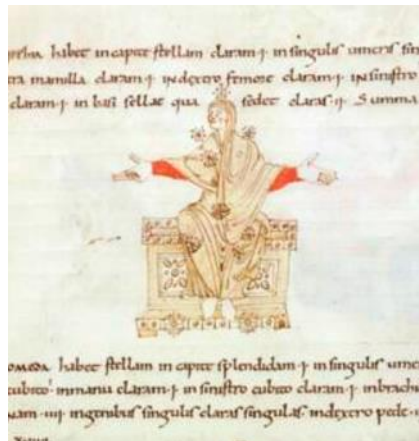 habet in capite stellam claram ·i· in singulis umeris sin
tra mamilla claram ·i· in dextro femore claram ·i· in sinistro
claram ·i· in basi sellae qua sedet claras ·ii· Summa
OMEDA habet stellam in capite splendidam ·i· in singulis ume
cubito ·i· in manu claram ·i· in sinistro cubito claram ·i· in brachio
nam ·iiii· in genibus singulis claras singulas in dextro pede